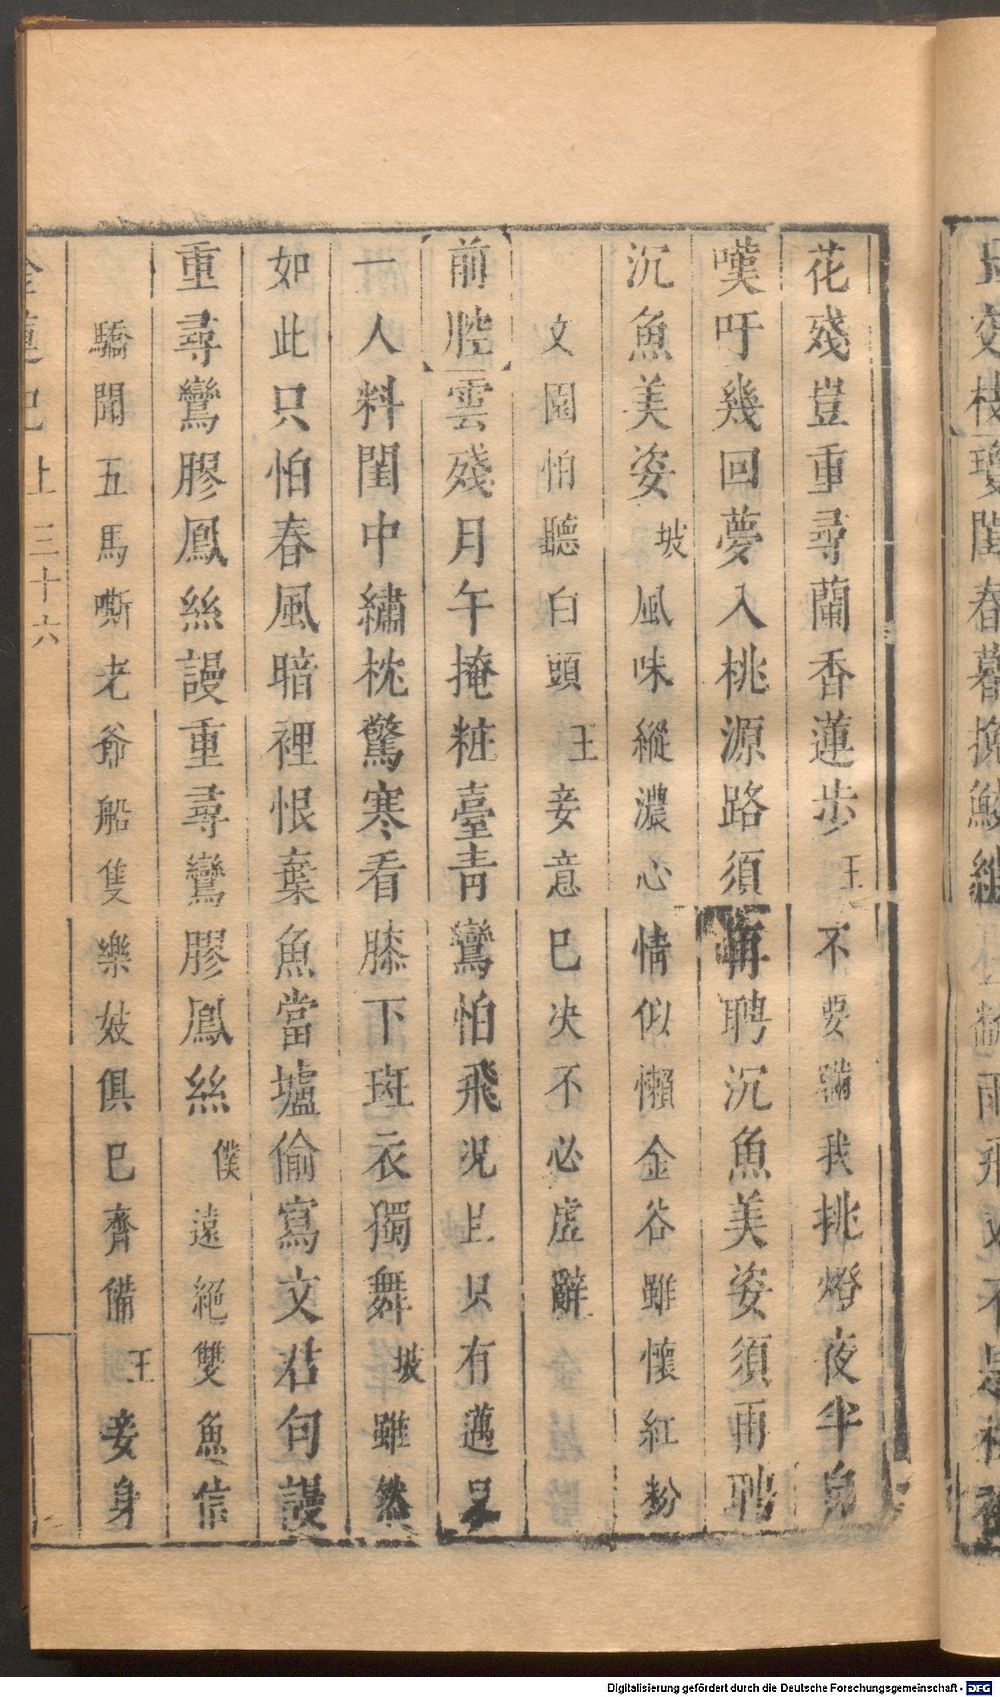 花殘豈重尋蘭香蓮步王不要瞞我挑燈夜半
嘆吁幾回夢入桃源路須再聘沉魚美姿須再聘
沉魚美姿坡風味縱濃心情似懶金谷雖懷紅粉
文園怕聽白頭王妾意已决不必虛辭
前腔雲殘月午掩粧臺青鸞怕飛况上只有邁
一人料閨中繡枕驚寒看膝下斑衣獨舞坡雖然
如此只怕春風暗裡恨棄魚當壚偷寫文君句謾
重尋鸞膠鳳絲謾重尋鸞膠鳳絲僕遠絕雙魚信
驕聞五馬嘶老爺船隻樂妓俱已齊備王妾身
金蓮記上三十六
交枝瓊閨春暮
Digitalisierung gefördert durch die Deutsche Forschungsgemeinschaft - DFG